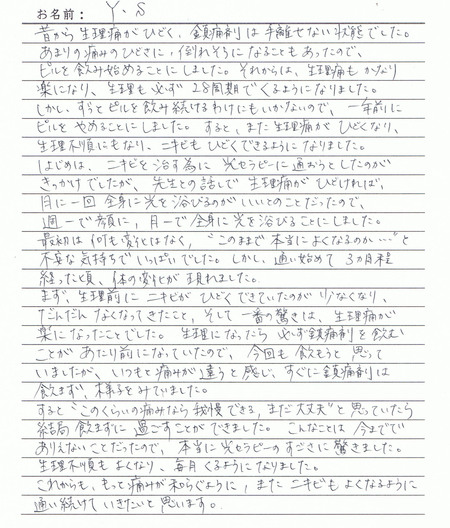 お名前: Y・S
昔から生理痛がひどく、鎮痛剤は手離せない状態でした。
あまりの痛みのひどさに、倒れそうになることもあったので、
ピルを飲み始めることにしました。それからは、生理痛もかなり
楽になり、生理も必ず28周期でくるようになりました。
しかし、ずっとピルを飲み続けるわけにもいかないので、一年前に
ピルをやめることにしました。すると、また生理痛がひどくなり、
生理不順にもなり、ニキビもひどくできるようになりました。
はじめは、ニキビを治す為に光セラピーに通おうとしたのが
きっかけでしたが、先生との話しで生理痛がひどければ、
月に一回全身に光を浴びるのがいいとのことだったので、
週一で顔に、月一で全身に光を浴びることにしました。
最初は何も変化はなく、“このままで本当によくなるのか…”と
不安な気持ちでいっぱいでした。しかし、通い始めて3ヵ月程
経った頃、体の変化が現れました。
まず、生理前にニキビがひどくできていたのが少なくなり、
だんだんなくなってきたこと、そして一番の驚きは、生理痛が
楽になったことでした。生理になったら必ず鎮痛剤を飲む
ことがあたり前になっていたので、今回も飲もうと思って
いましたが、いつもと痛みが違うと感じ、すぐに鎮痛剤は
飲まず、様子をみていました。
すると“このくらいの痛みなら我慢できる、まだ大丈夫”と思っていたら
結局飲まずに過ごすことができました。こんなことは今までで
ありえないことだったので、本当に光セラピーのすごさに驚きました。
生理不順もよくなり、毎月くるようになりました。
これからも、もっと痛みが和らぐように、またニキビもよくなるように
通い続けていきたいと思います。